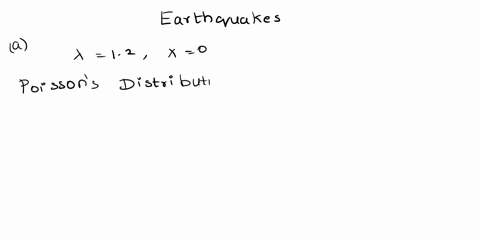 Earthquakes
(a)
λ = 1.2, x = 0
Poisson's Distributi